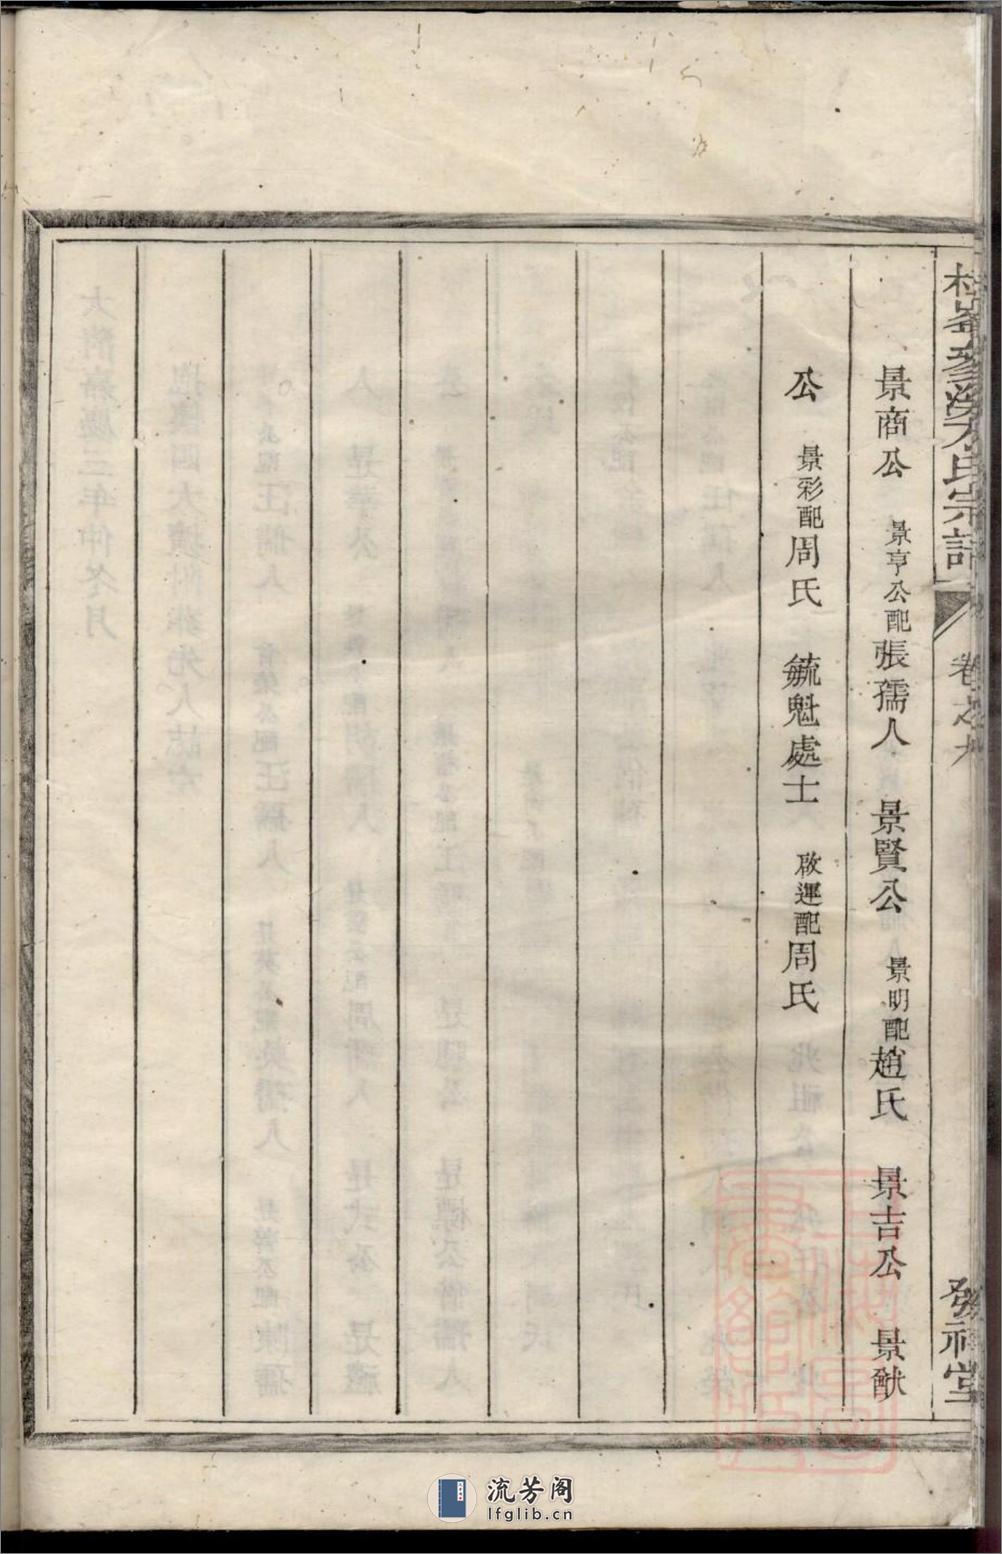 景商公 景亨公配張孺人 景賢公 景明配趙氏 景吉公 景猷
公 景彩配周氏 毓魁處士 啟運配周氏
方氏宗譜 卷之九 發祥堂
流芳阁
lfglib.cn